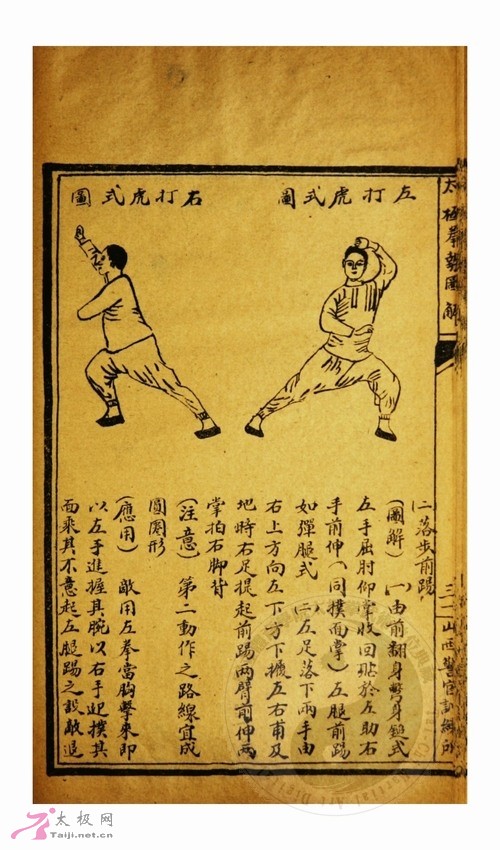 太極拳勢圖解
左打虎式圖
右打虎式圖
(二落步前踢
(圖解) (一)由前翻身彆身鎚式
左手屈肘仰掌收回貼於左助右
手前伸(同撲面掌)左腿前踢
如彈腿式 (二)左足落下兩手由
右上方向左下方下攦左右甫及
地時右足提起前踢兩臂前伸兩
掌拍右脚背
(注意) 第二動作之路線宜成
圓圈形
(應用) 敵用左拳當胸擊來即
以左手進握其腕以右手迎撲其
面乘其不意起左腿踢之設敵退
山西警官訓練所
太极网
Taiji.net.cn